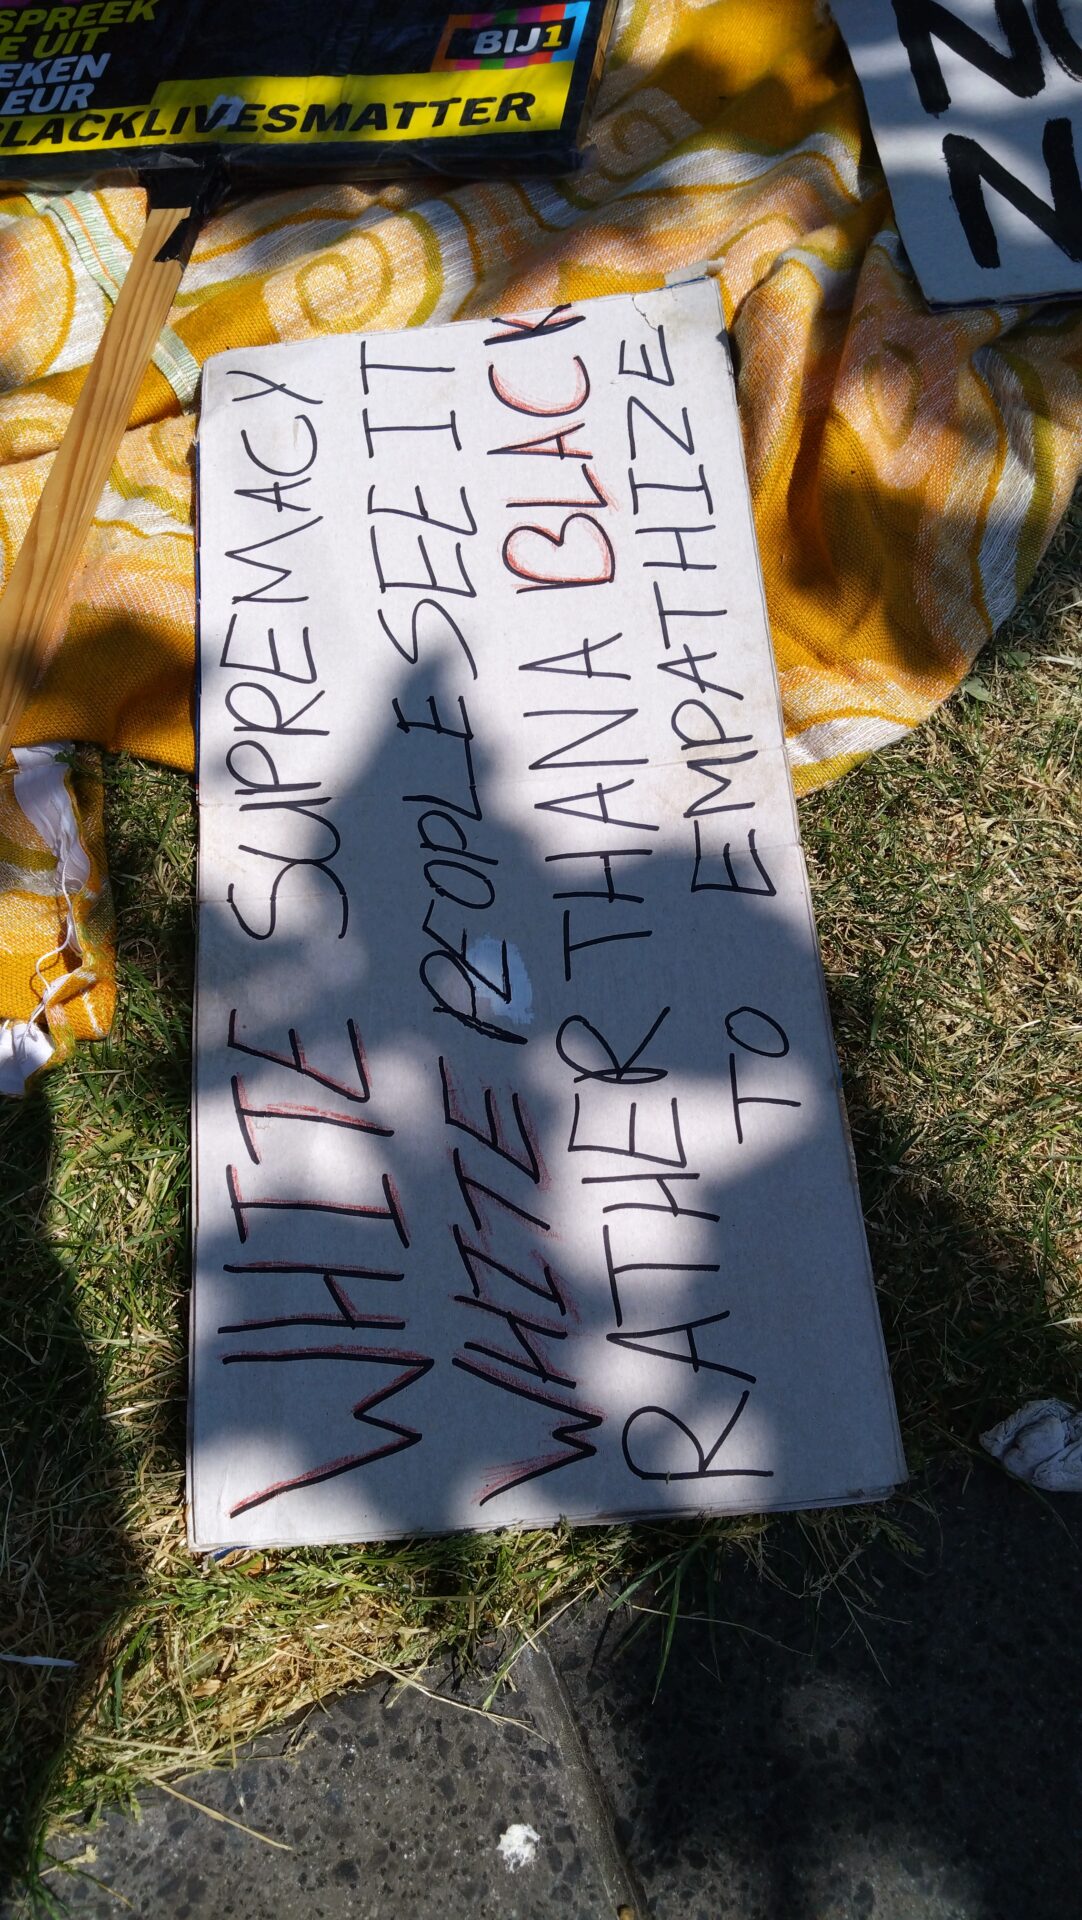 SPREEK
E UIT
EKEN
EUR
BIJ1
BLACKLIVESMATTER
NO
N
WHITE SUPREMACY
WHITE PEOPLE SEE IT
RATHER THAN A BLACK
TO EMPATHIZE